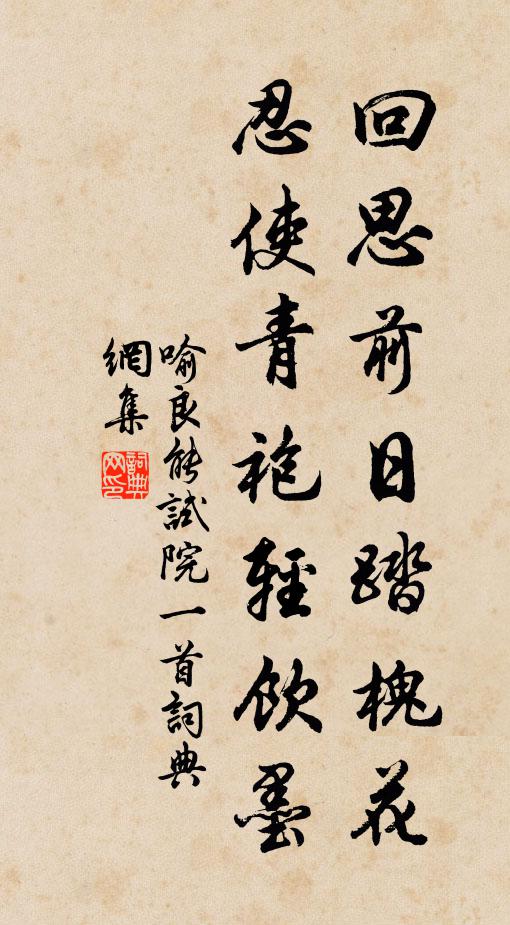 回思前日踏槐花
忍使青袍輕飲墨
喻良能試院一首詞典
網集
詞典網印